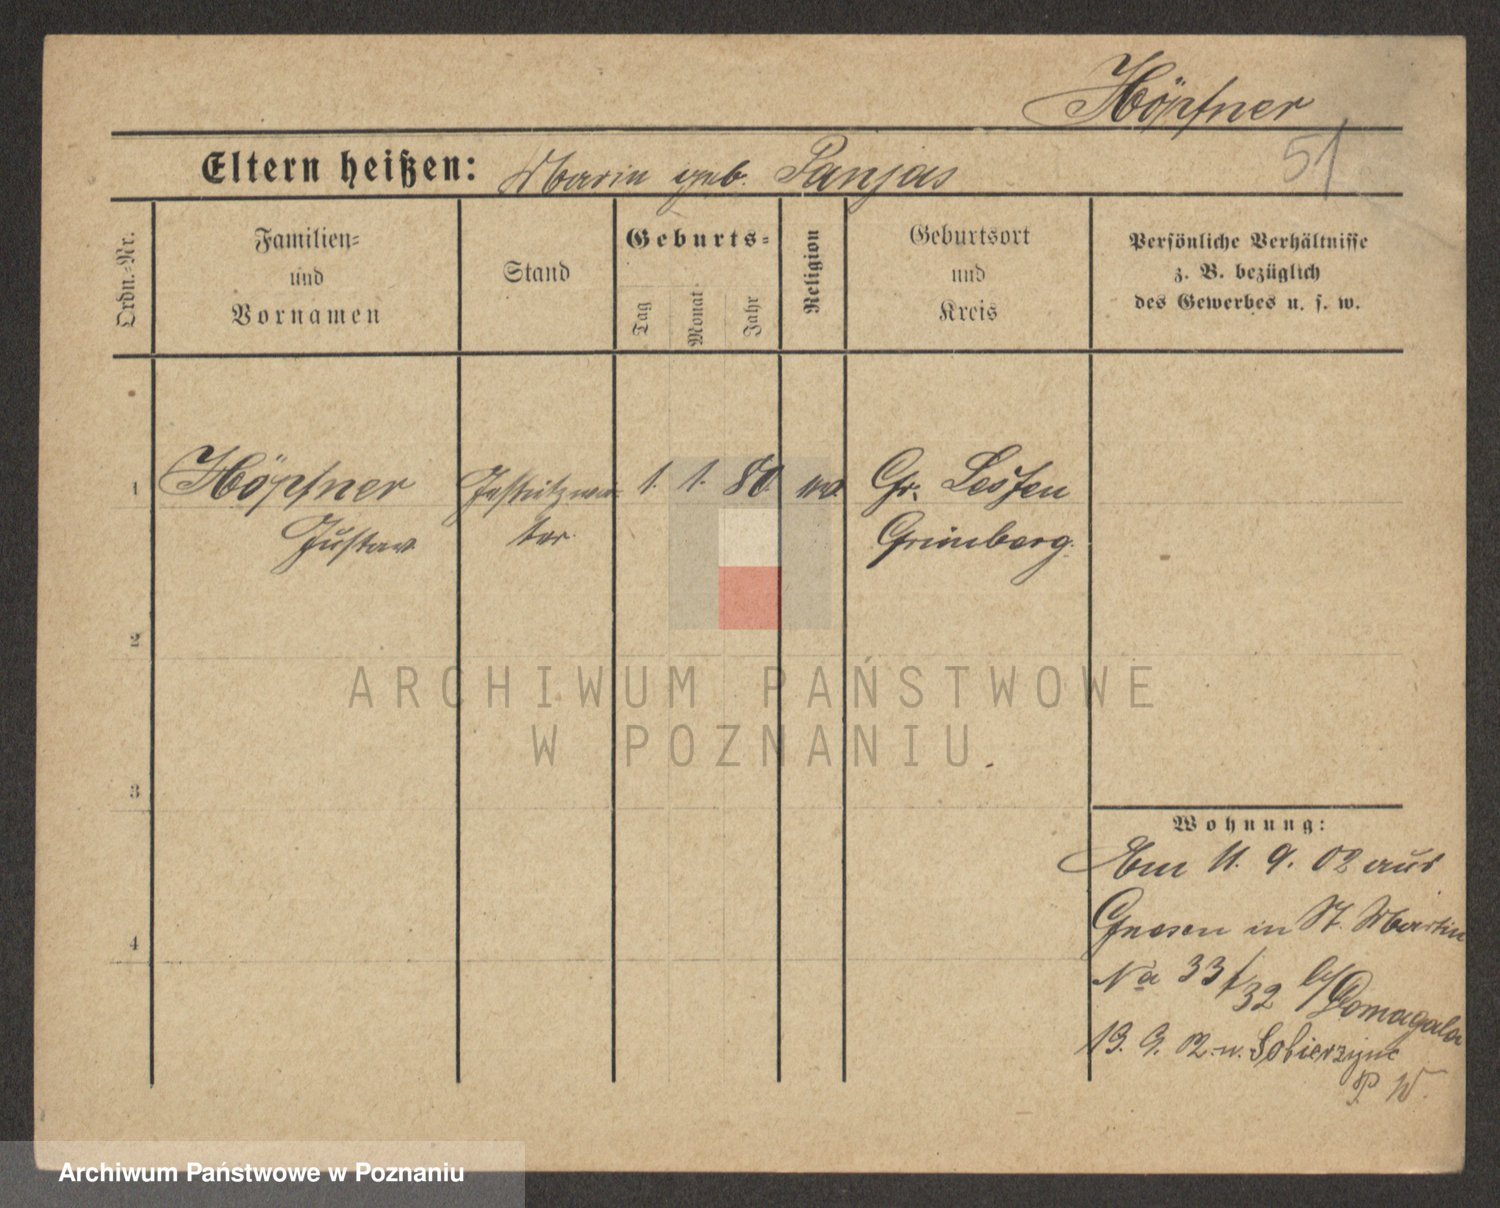 Höpfner
51
Eltern heißen: Marie geb. Panjas
Ordn.-Nr.
Familien-
und
Vornamen
Stand
Geburts-
Tag
Monat
Jahr
Religion
Geburtsort
und
Kreis
Persönliche Verhältnisse
z. B. bezüglich
des Gewerbes u. s. w.
1 Höpfner 1. 1. 80. Gr. Lessen
Gustav Grünberg.
2
3
4
ARCHIWUM PAŃSTWOWE
W POZNANIU
Wohnung:
Am 11. 9. 02 aus
Gnesen in St. Martin
No 33/32 b/ Domagala
13. 9. 02 n. Sobierzyne
P W.
Archiwum Państwowe w Poznaniu